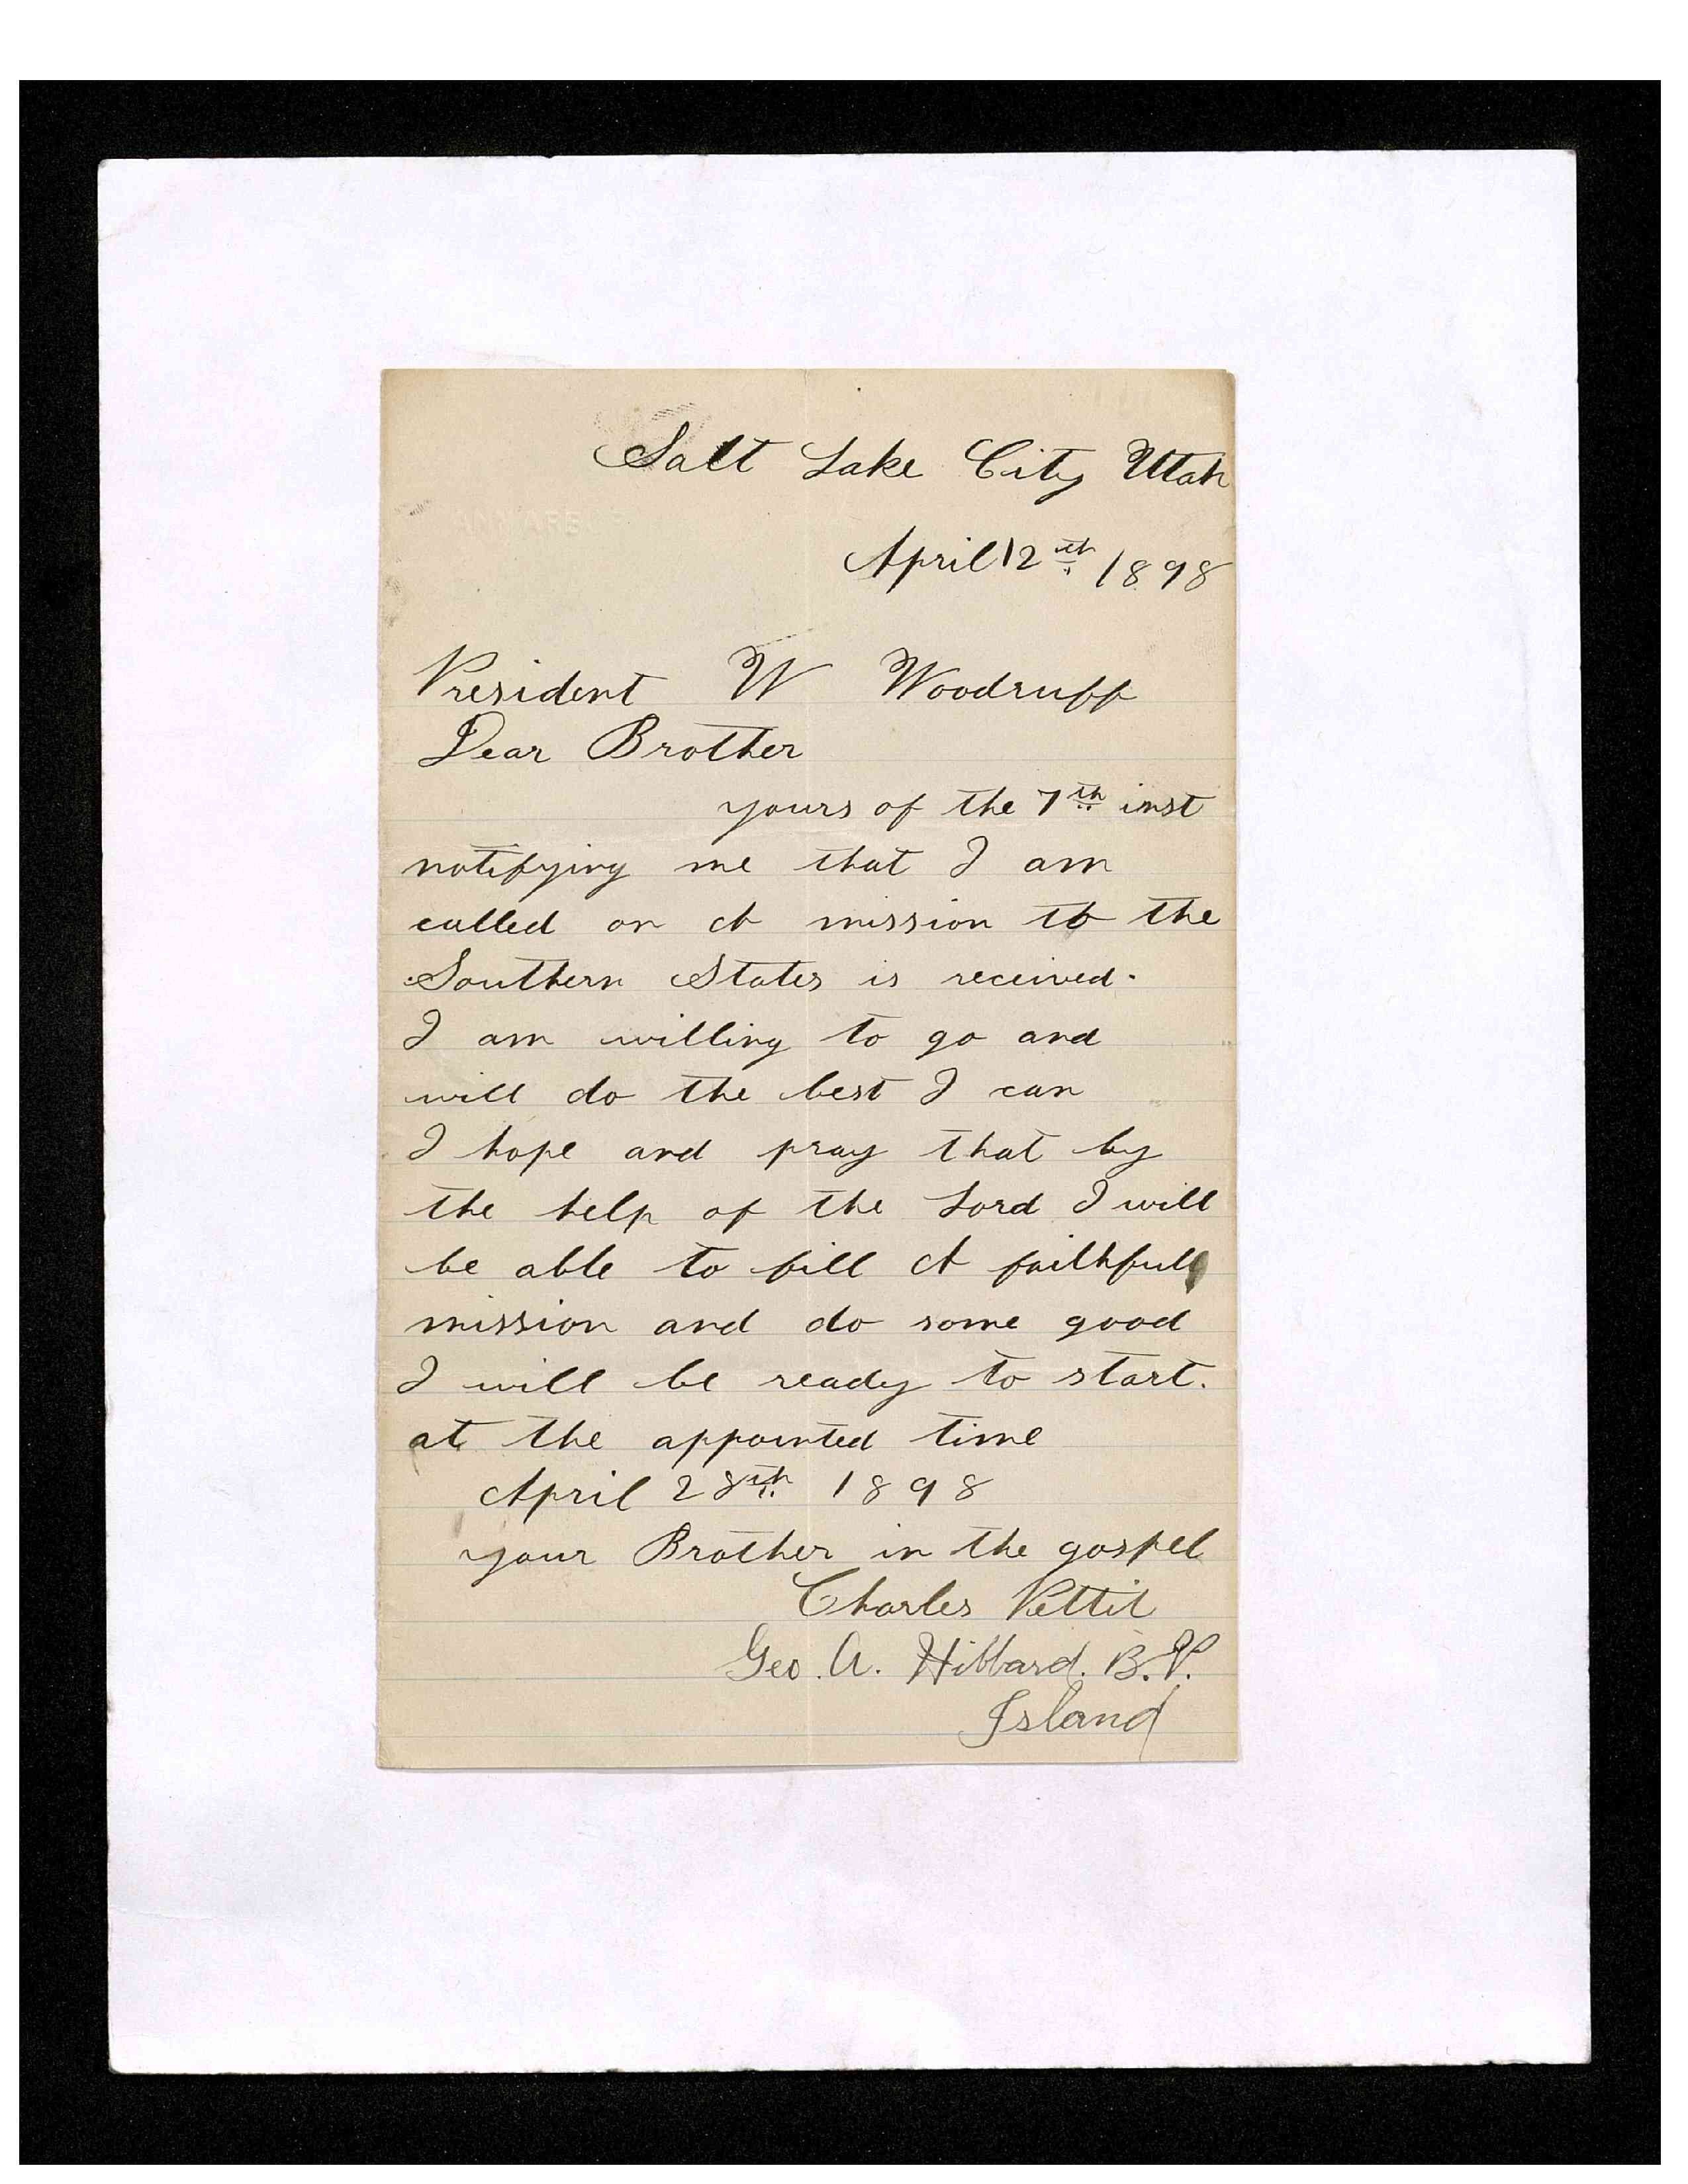 Salt Lake City Utah
April 12th 1898
President W Woodruff
Dear Brother
yours of the 7th inst
notifying me that I am
called on A mission to the
Southern States is received.
I am willing to go and
will do the best I can
I hope and pray that by
the help of the Lord I will
be able to fill A faithfull
mission and do some good
I will be ready to start.
at the appointed time
April 28th 1898
your Brother in the gospel
Charles Pettit
Geo. A. Hibbard. B.P.
Island